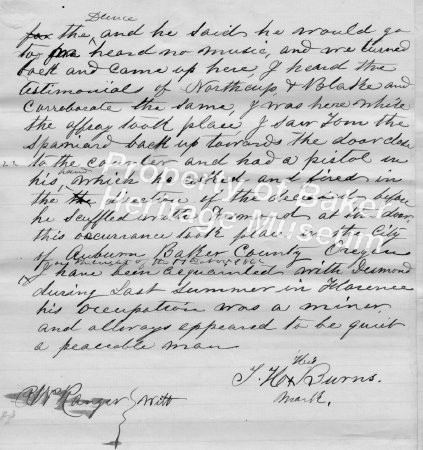 Dance
for the, and he said he would go
to heard no music, and we turned
back and came up here, I heard the
testimonial of Northcup, & Blake and
corroborate the same, I was here while
the affray took place I saw Tom the
Spaniard back up towards the door close
to the counter and had a pistol in
his hand, which he and fired in
the direction of the deceased, before
he scuffled with Desmond at the door
this occurrance took place in the City
of Auburn Baker County Oregon
I have been acquainted with Desmond
during last summer in Florence
his occupation was a miner
and allways appeared to be quiet
a peaceable man
His
J. H. X Burns.
Mark.
Ranger } Witt
Property of Baker
Heritage Museum